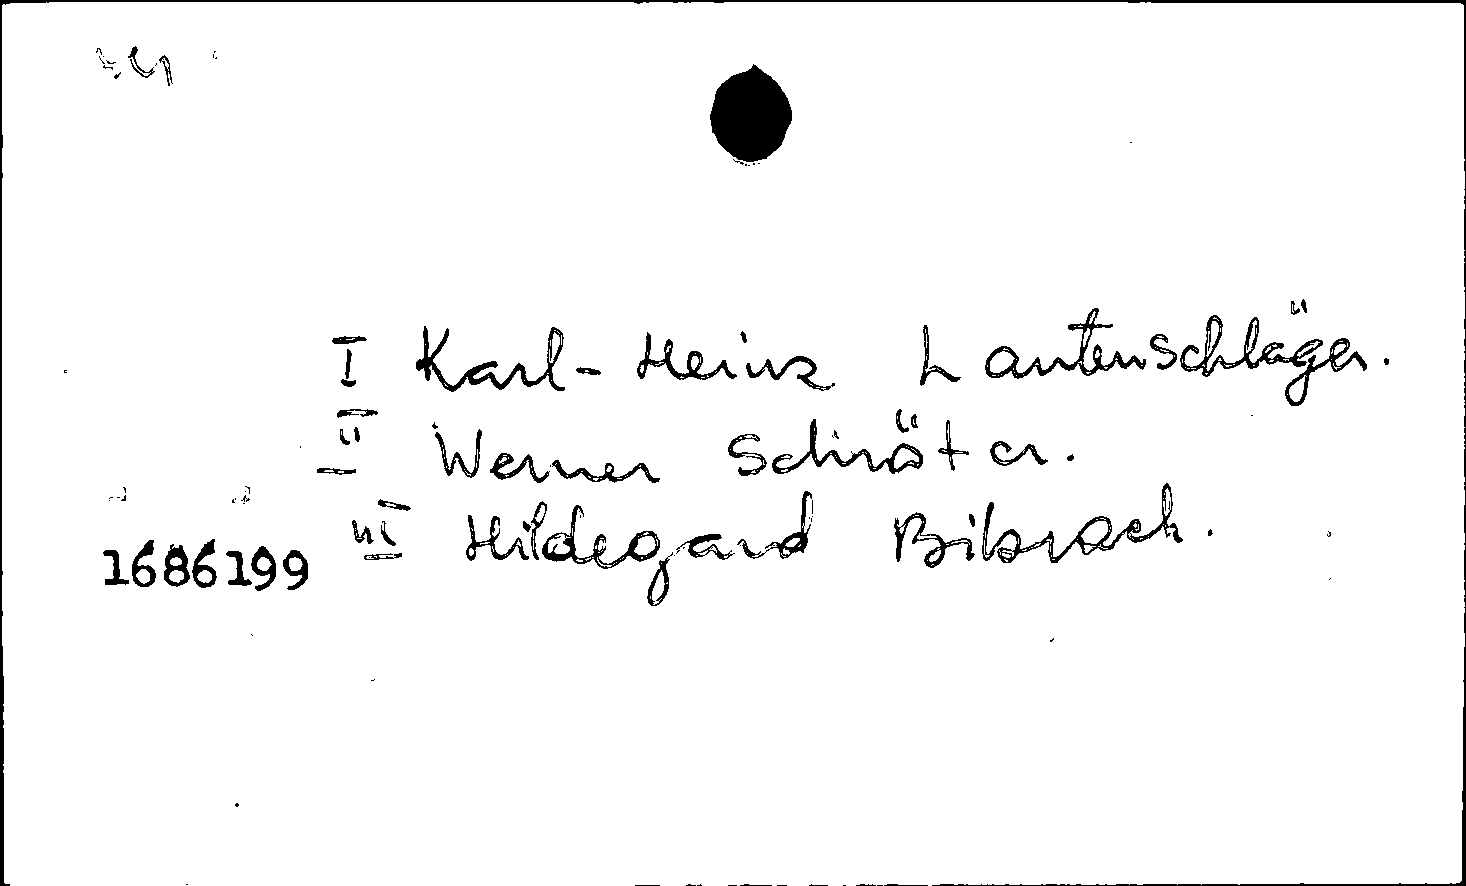 I Karl-Heinz Lautenschläger.
II Werner Schröter.
III Hildegard Bibrach.
1686199